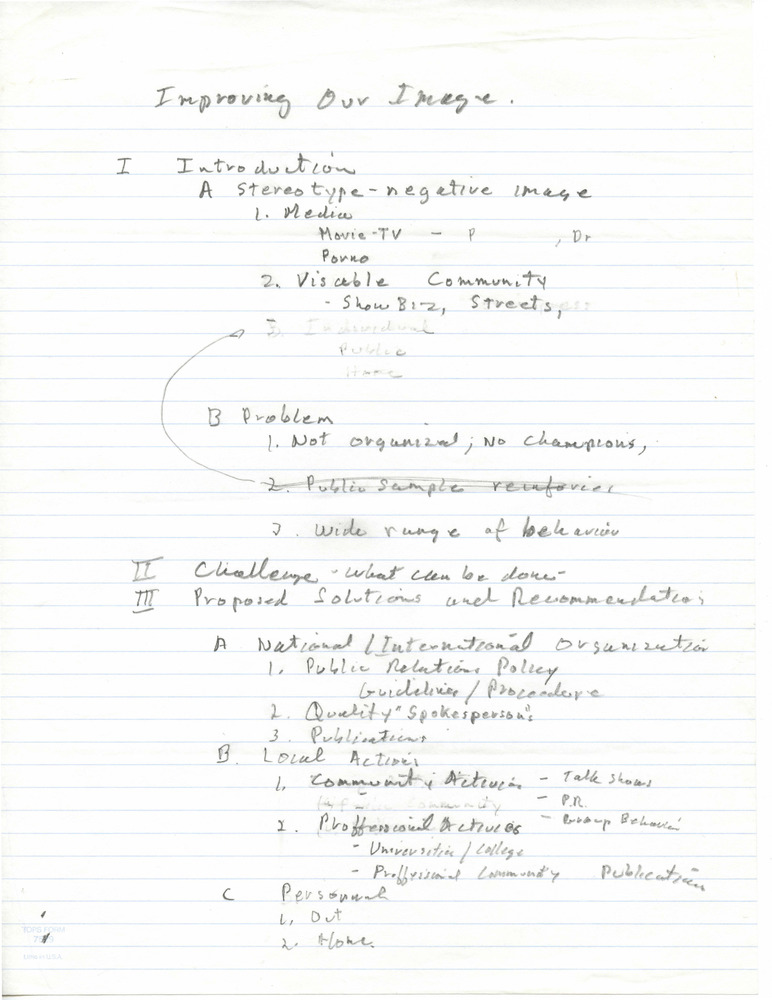 Improving Our Image.
I Introduction
A Stereotype-negative image
1. Media
Movie-TV - P , Dr
Porno
2. Visable Community
- Show Biz, Streets,
3. Individual
Public
Home
B Problem
1. Not organized; No Champions,
2. Public Sample reinforces
3. Wide range of behavior
II Challenge - What can be done -
III Proposed Solutions and Recommendations
A National/International Organization
1. Public Relations Policy
Guidelines / Proceedure
2. Quality "Spokespersons
3. Publications
B. Local Actions
1. Community Activies - Talk shows
Community - P.R.
2. Proffessional Activies - Group Behavior
- Universities / College
- Proffessional Community Publication
C Personal
1. Out
2. Home.
TOPS FORM